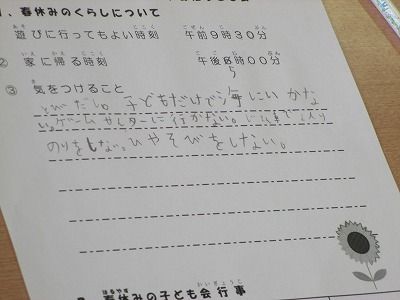 1、春休みのくらしについて
遊びに行ってもよい時刻 午前9時30分
② 家に帰る時刻 午後5時00分
③ 気をつけること
とびだし。子どもだけで海にいかな
い。ゲームセンターに行かない。じてん車で2人
のりをしない。ひやそびをしない。
春休みの子ども会行事